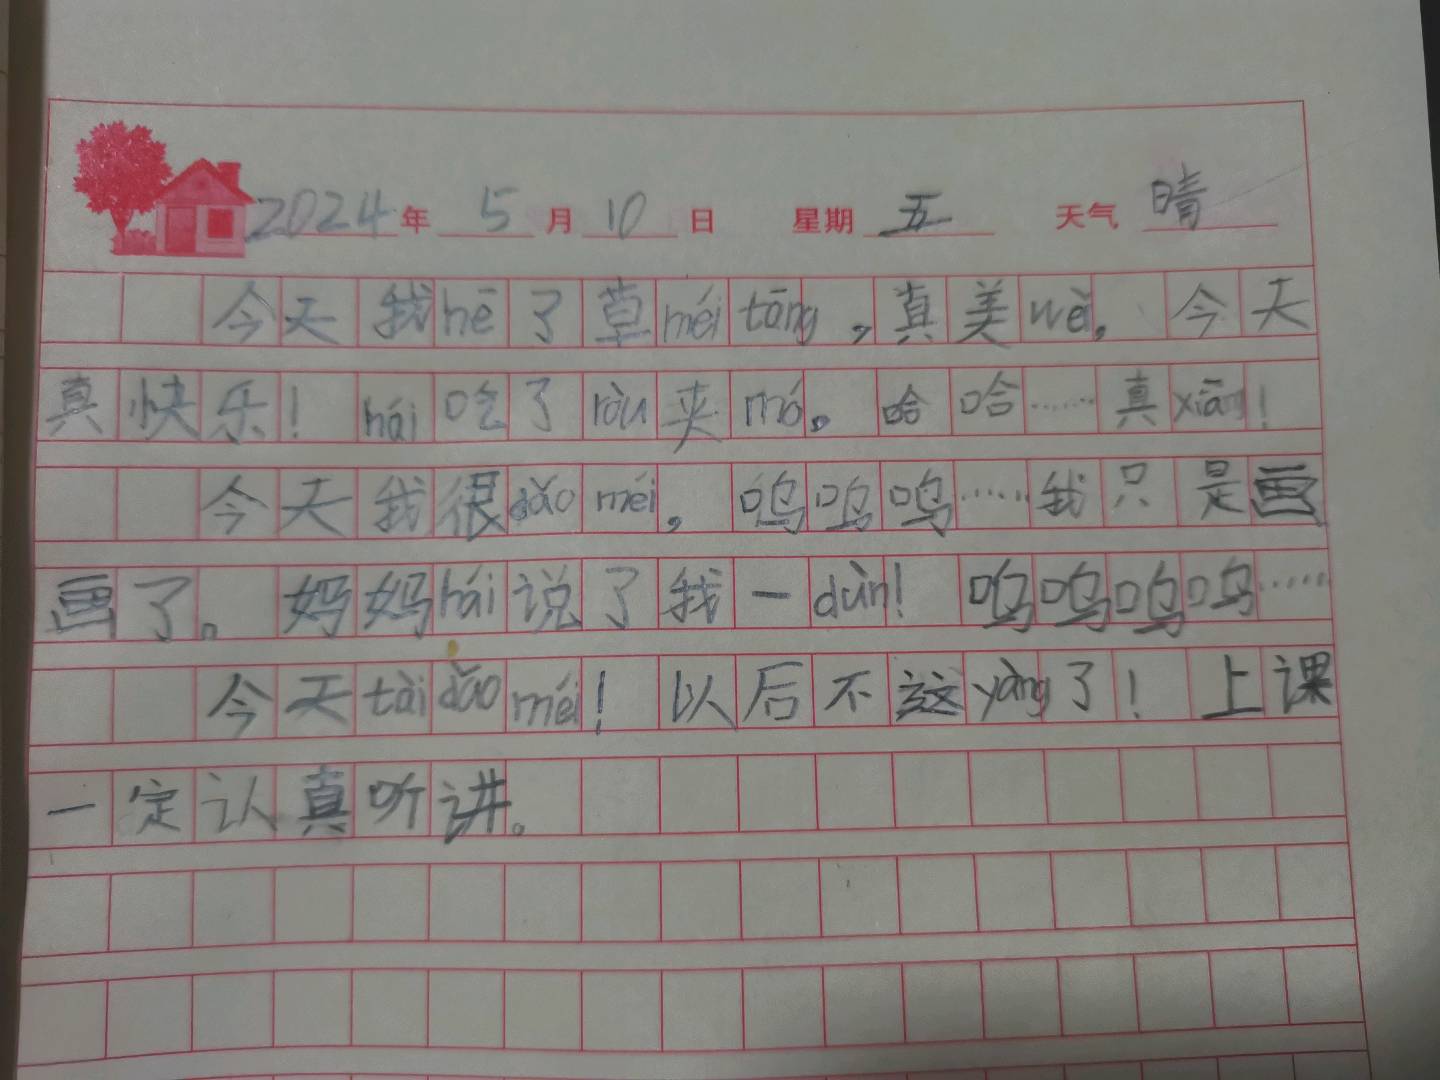 2024年 5月10日 星期五 天气 晴
今天我hē了草méi tāng，真美wèi。今天
真快乐！hái吃了ròu夹mó。哈哈……真xiāng！
今天我很dǎo méi，呜呜呜……我只是画
画了。妈妈hái说了我一dùn！呜呜呜呜……
今天tài dǎo méi！以后不这yàng了！上课
一定认真听讲。